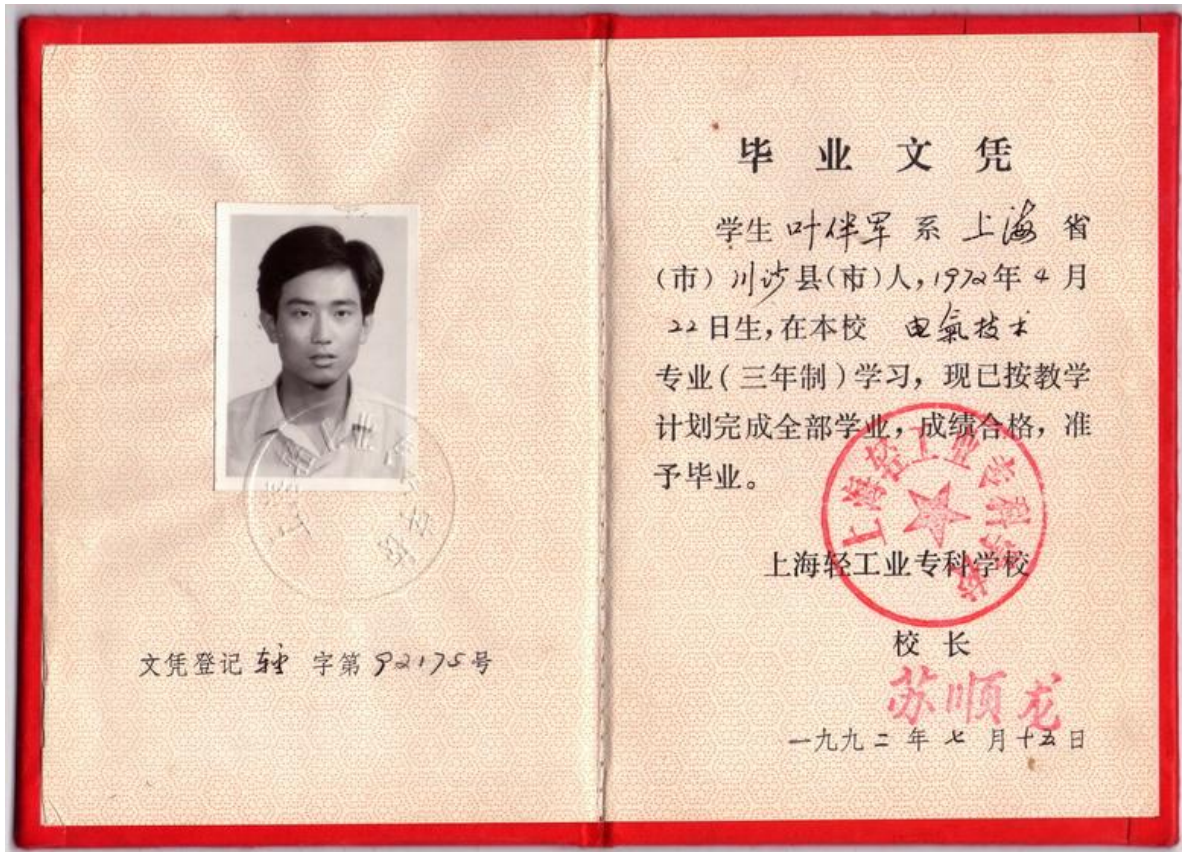 文凭登记 轻 字第 92175号
毕业文凭
学生 叶伴军 系 上海 省
(市) 川沙县(市)人,1972年 4 月
22日生,在本校 电氣技术
专业(三年制)学习，现已按教学
计划完成全部学业，成绩合格，准
予毕业。
上海轻工业专科学校
上海轻工业专科学校
校长
苏顺龙
一九九二年七月十五日